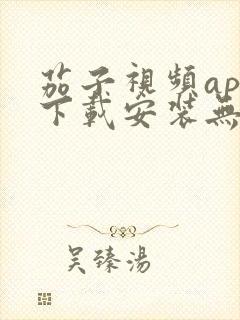 茄子視頻ap
下載安装無
吴臻湯